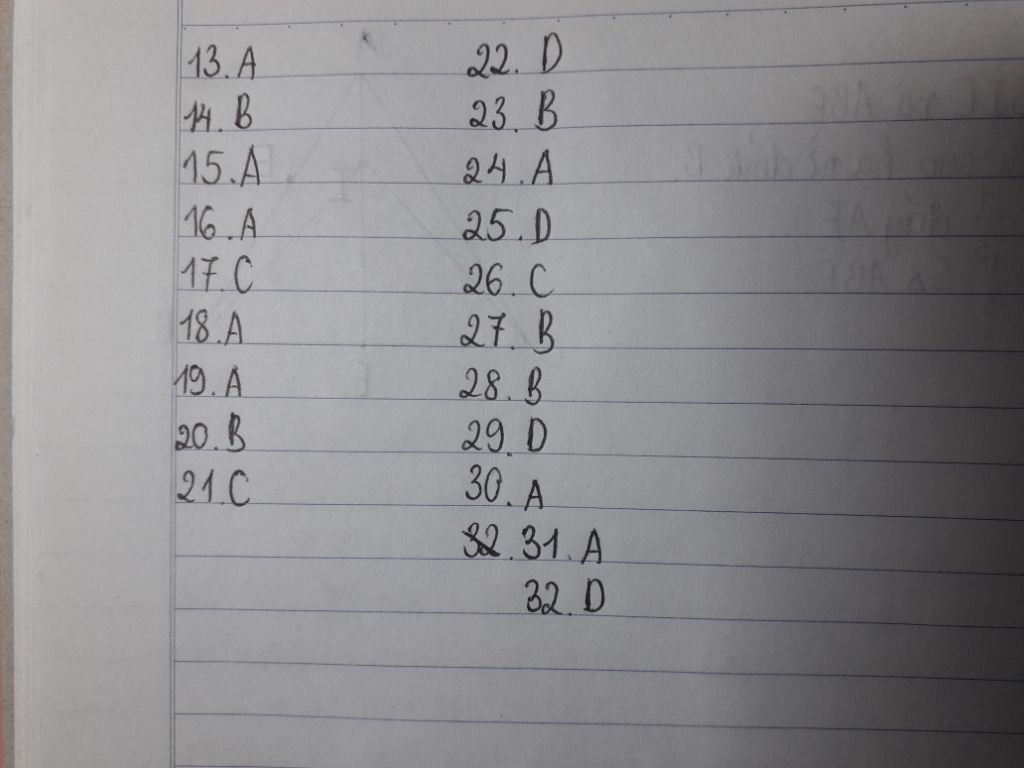 13. A
14. B
15. A
16. A
17. C
18. A
19. A
20. B
21. C
22. D
23. B
24. A
25. D
26. C
27. B
28. B
29. D
30. A
32. 31. A
32. D